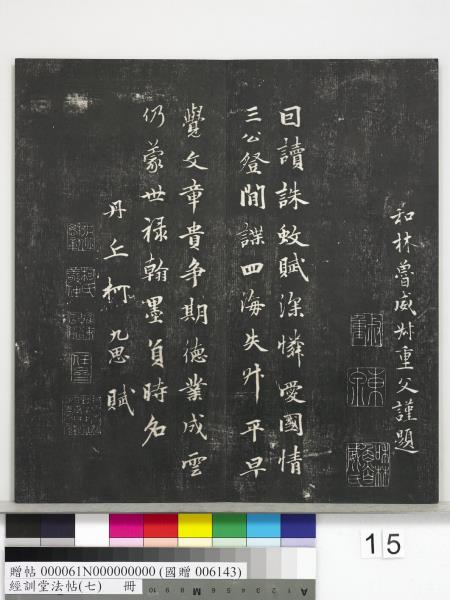 和林魯威叔重父謹題
囙讀誅蚊賦深憐愛國情
三公登間諜四海失升平早
覺文章貴爭期德業成雲
仍蒙世祿翰墨負時名
丹丘柯九思賦
柯氏敬仲
15
贈帖 000061N000000000 (國贈 006143)
經訓堂法帖(七) 冊